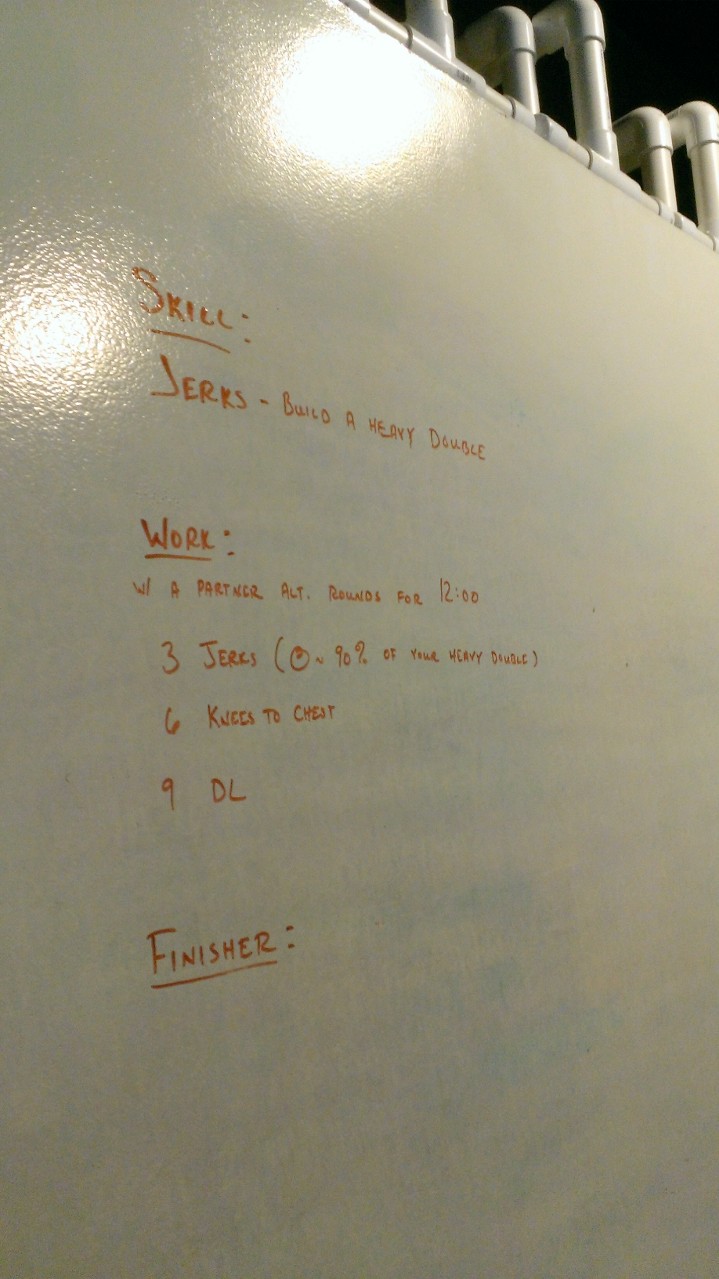 SKILL:
JERKS - BUILD A HEAVY DOUBLE
WORK:
W/ A PARTNER ALT. ROUNDS FOR 12:00
3 JERKS (@ ~ 90% OF YOUR HEAVY DOUBLE)
6 KNEES TO CHEST
9 DL
FINISHER: